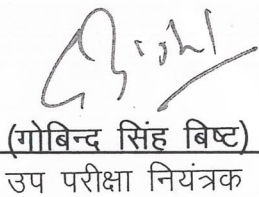 (गोबिन्द सिंह बिष्ट)
उप परीक्षा नियंत्रक